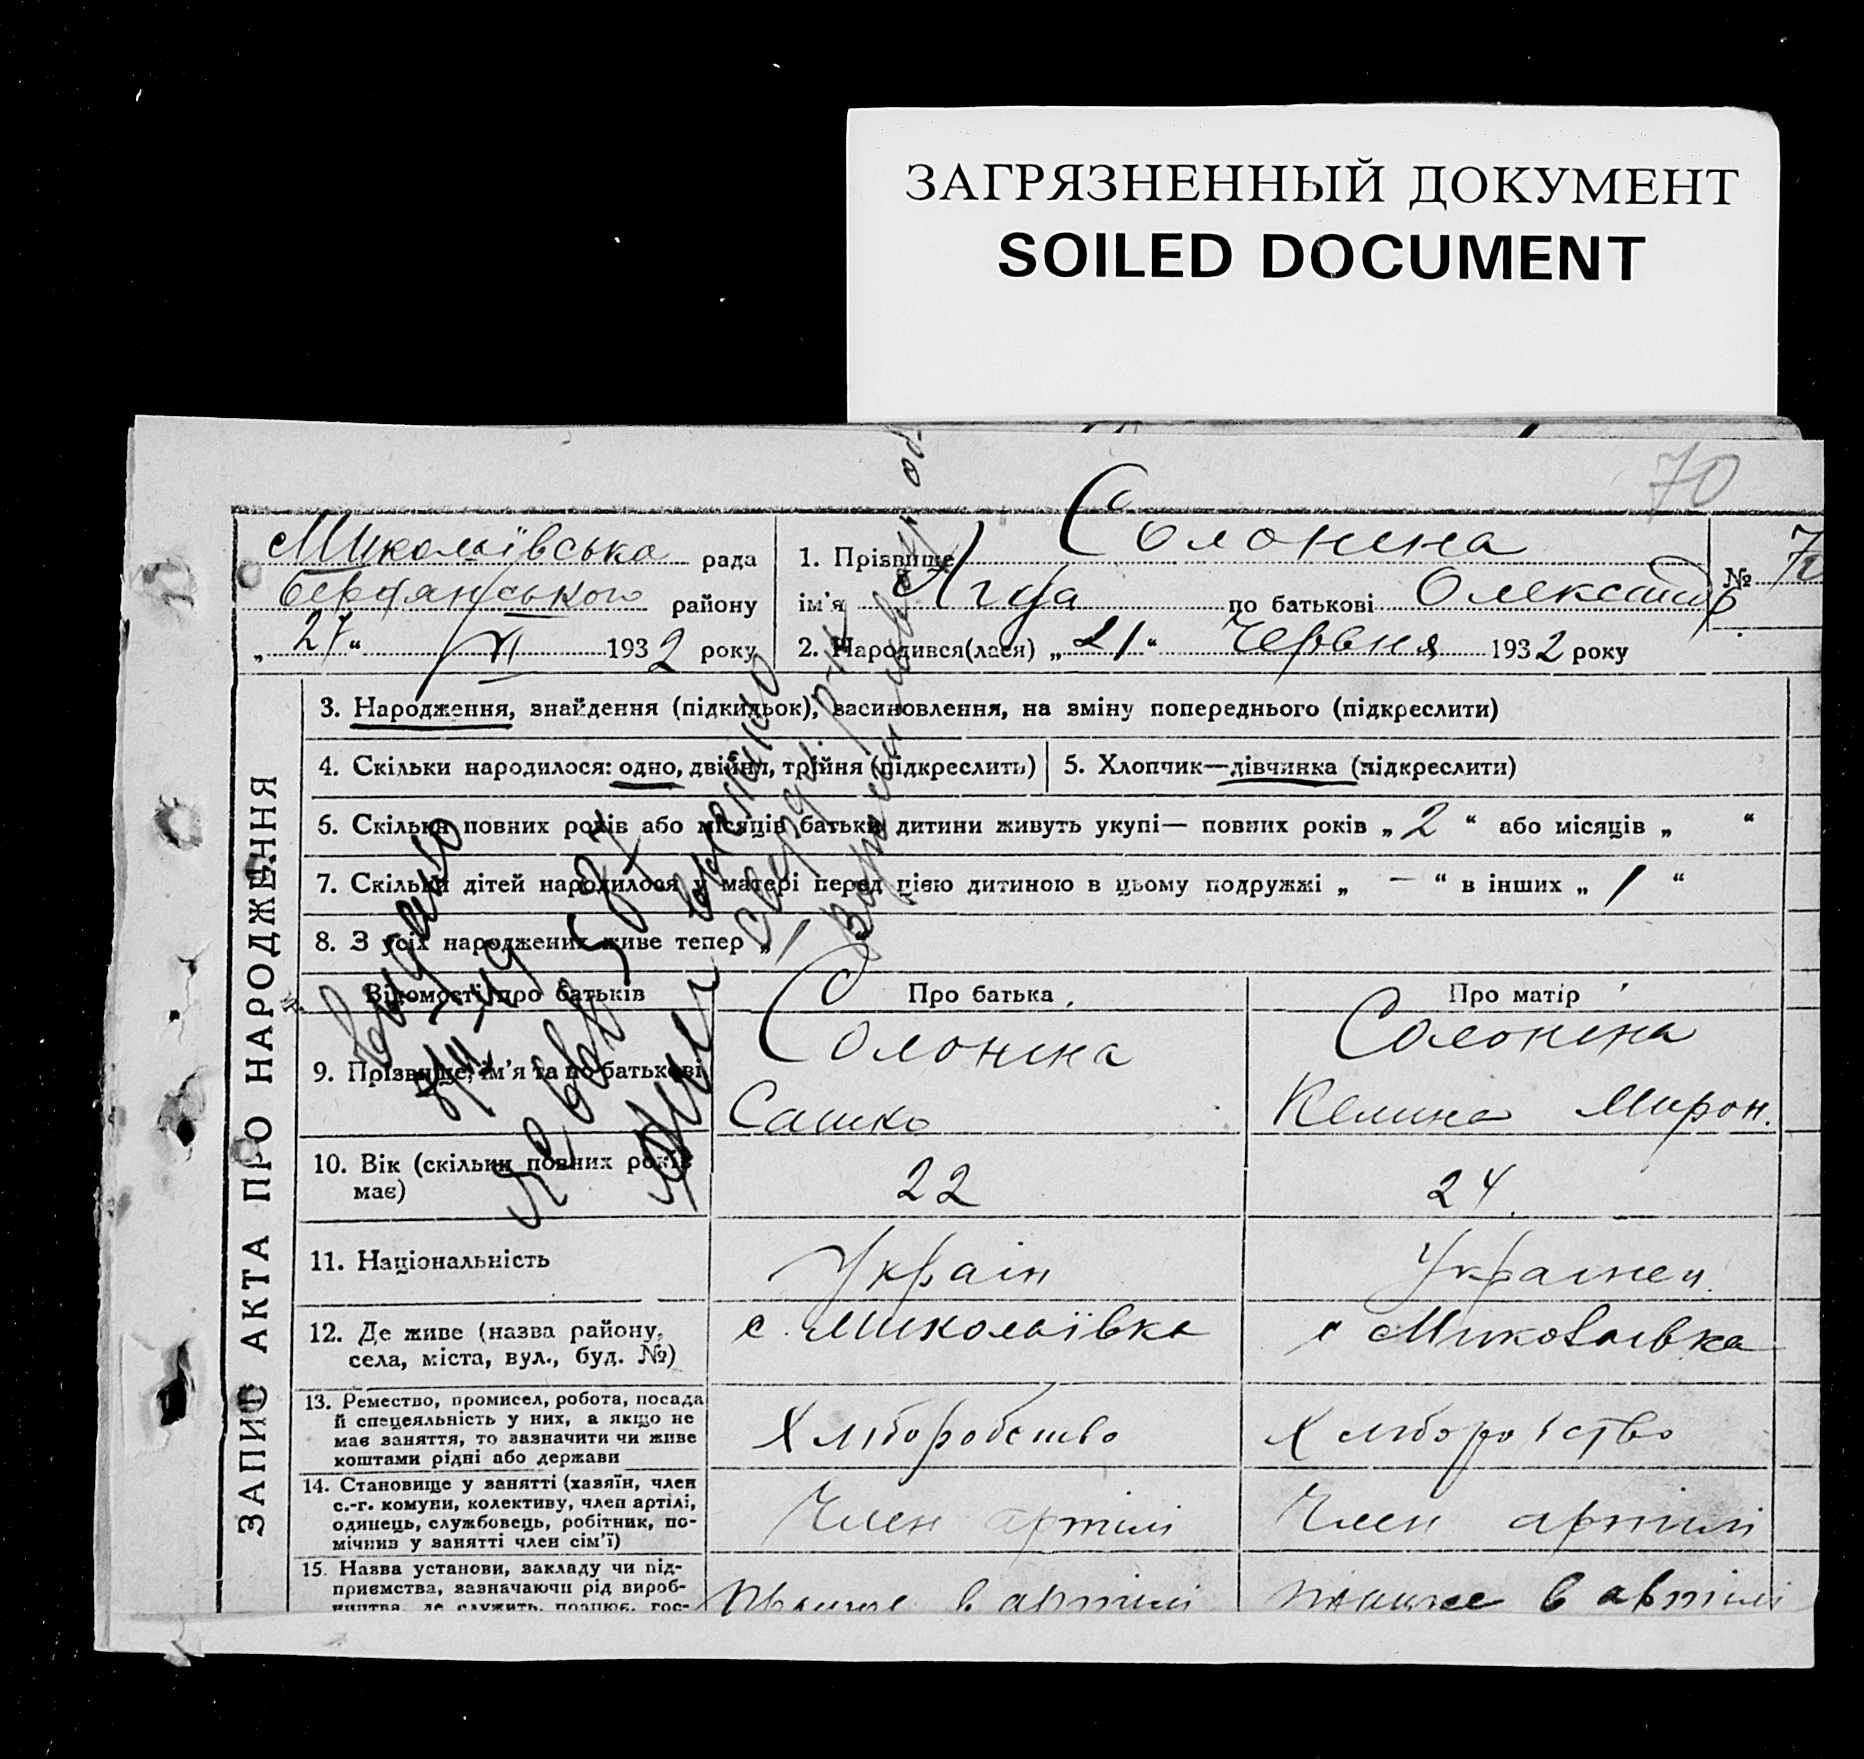 ЗАГРЯЗНЕННЫЙ ДОКУМЕНТ
SOILED DOCUMENT
70
Миколаївська рада
Бердянського району
„ 27 “ VI 1932 року
1. Прізвище Солонина
ім'я Агда по батькові Олександр.
2. Народився(лася) „ 21 “ Червня 1932 року
№ 70
ЗАПИС АКТА ПРО НАРОДЖЕННЯ
3. Народження, знайдення (підкидьок), засиновлення, на зміну попереднього (підкреслити)
4. Скільки народилося: одно, двійня, трійня (підкреслить)
5. Хлопчик—дівчинка (підкреслити)
5. Скільки повних років або місяців батьки дитини живуть укупі— повних років „ 2 “ або місяців „ “
7. Скільки дітей народилося у матері перед цією дитиною в цьому подружжі „ — “ в інших „ 1 “
8. З усіх народжених живе тепер „ 1
Відомості про батьків
Про батька
Про матір
9. Прізвище, ім'я та по батькові
Солонина
Сашко
Солонина
Келина Мирон.
10. Вік (скільки повних років
має)
22
24
11. Національність
Україн
Українец
12. Де живе (назва району,
села, міста, вул., буд. №)
с. Миколаївка
с Миколаївка
13. Ремество, промисел, робота, посада
й спецеяльність у них, а якщо не
має заняття, то зазначити чи живе
коштами рідні або держави
Хліборобство
Хліборобство
14. Становище у занятті (хазяїн, член
с.-г. комуни, колективу, член артілі,
одинець, службовець, робітник, по-
мічниз у занятті член сім'ї)
Член артілі
Член артілі
15. Назва установи, закладу чи під-
приємства, зазначаючи рід вироб-
ництва, де служить, працює, гос-
в артілі
в артілі
видано